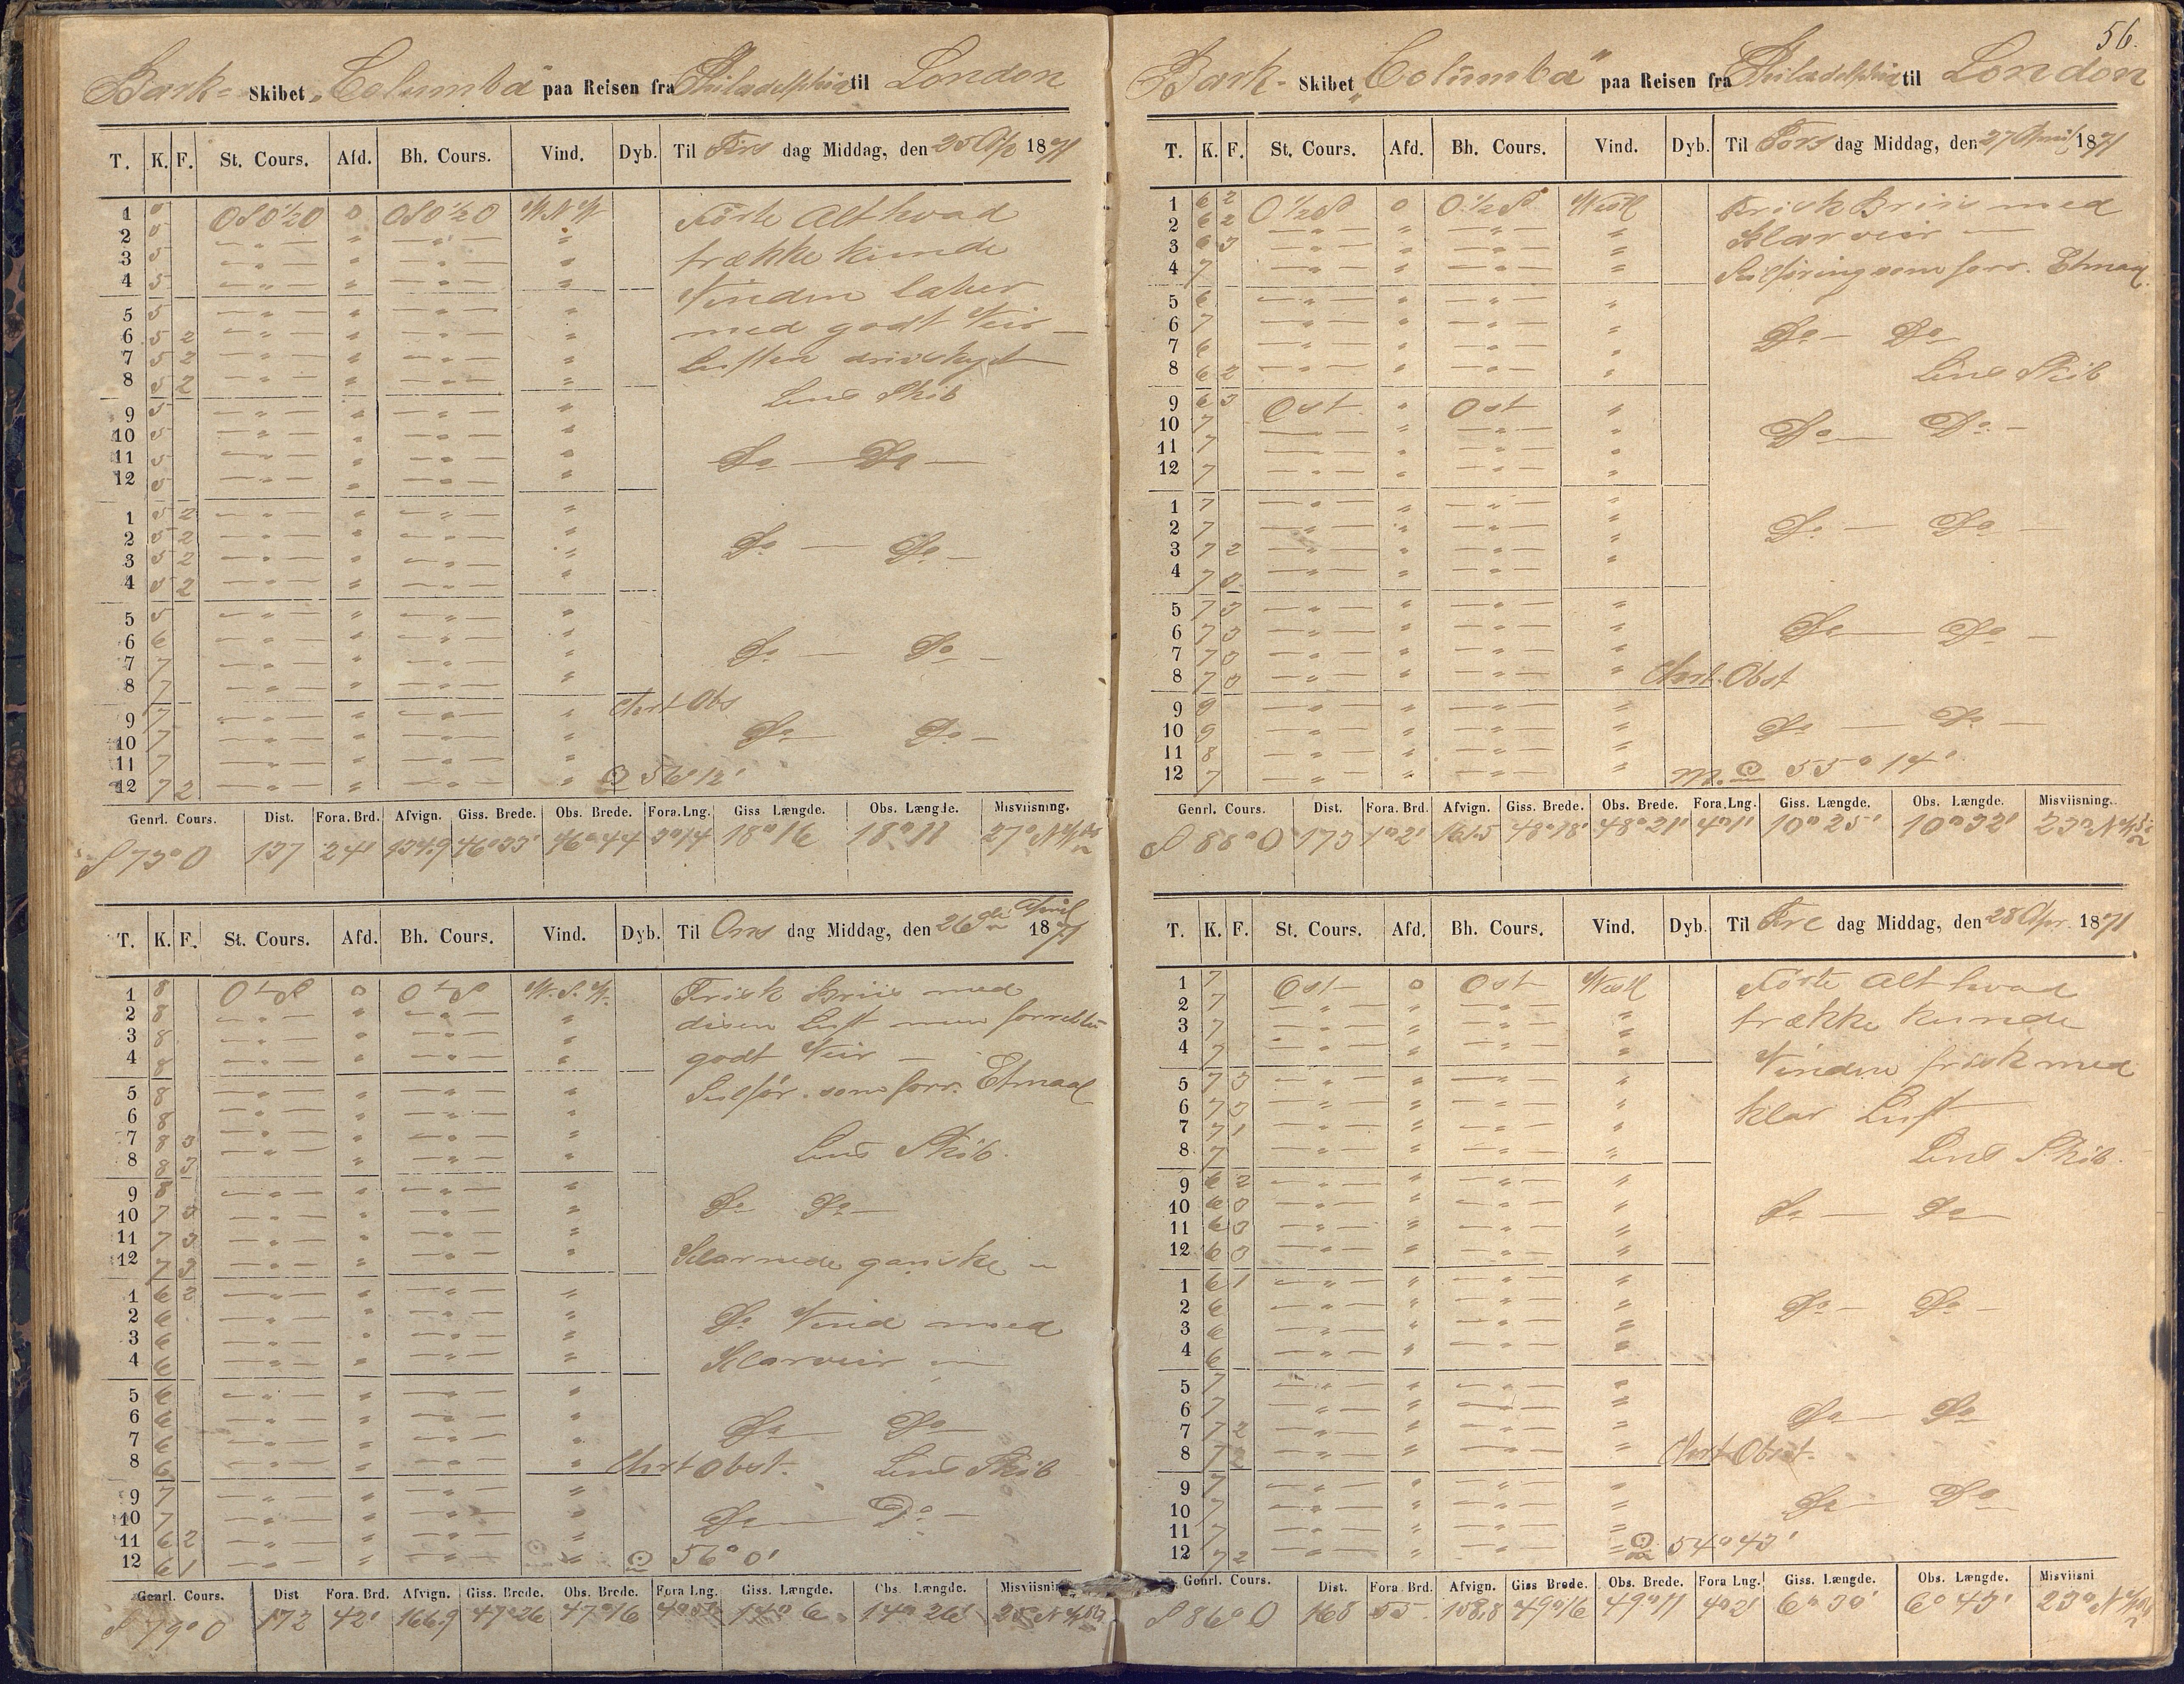 Bark- Skibet „Columba" paa Reisen fra Philadelphia til London
T. K. F. St. Cours. Afd. Bh. Cours. Vind. Dyb. Til Tirs dag Middag, den 25 Apr 1871
1 5 OSO½O 0 OSO½O W.N.W Förte Alt hvad
2 5 — " — " — " — " trække kunde
3 5 — " — " — " — "
4 5 — " — " — " — " Vinden laber
5 5 — " — " — " — " med godt Veir —
6 5 2 — " — " — " — "
7 5 2 — " — " — " — " Luften driv skyet
8 5 2 — " — " — " — " Lens Skib
9 5 — " — " — " — "
10 5 — " — " — " — "
11 5 — " — " — " — " Do — Do —
12 5 — " — " — " — "
1 5 2 — " — " — " — "
2 5 2 — " — " — " — "
3 5 2 — " — " — " — " Do — Do —
4 5 2 — " — " — " — "
5 5 — " — " — " — "
6 6 — " — " — " — "
7 7 — " — " — " — " Do — Do —
8 7 — " — " — " — "
9 7 — " — " — " — " Chrt Obs
10 7 — " — " — " — " Do — Do —
11 7 — " — " — " — "
12 7 2 — " — " — " — " ⊙ 56° 12'
Genrl. Cours. Dist. Fora. Brd. Afvign. Giss. Brede. Obs. Brede. Fora. Lng. Giss Længde. Obs. Længde. Misviisning.
S 73° O 137 24' 134.9 46°33' 46°44 3°14 18°16 18°11 27° N
T. K. F. St. Cours. Afd. Bh. Cours. Vind. Dyb. Til Ons dag Middag, den 26de April 1871
1 8 0 W.S.W. Frisk Briis med
2 8 — " — " — " — " disen Luft men forresten
3 8 — " — " — " — "
4 8 — " — " — " — " godt Veir —
5 8 — " — " — " — " Seilför. som forr. Etmaal
6 8 — " — " — " — "
7 8 3 — " — " — " — " Lens Skib.
8 8 3 — " — " — " — "
9 8 — " — " — " — "
10 7 3 — " — " — " — " Do Do —
11 7 3 — " — " — " — "
12 7 3 — " — " — " — " Klarnede ganske
1 6 2 — " — " — " — "
2 6 — " — " — " — " Do Vind med
3 6 — " — " — " — "
4 6 — " — " — " — " Klarveir —
5 6 — " — " — " — "
6 6 — " — " — " — "
7 6 — " — " — " — " Do — Do —
8 6 — " — " — " — " Chrt Obst. Lens Skib
9 7 — " — " — " — "
10 7 — " — " — " — " Do — Do —
11 6 2 — " — " — " — "
12 6 1 — " — " — " — " ⊙ 56° 0'
Genrl. Cours. Dist Fora. Brd. Afvign. Giss. Brede. Obs. Brede. Fora Lng. Giss. Længde. Obs. Længde. Misviisning
S 79° O 172 42' 166.9 47°26 47°16 14° 6 14° 26' 25° N
56.
Bark- Skibet „Columba" paa Reisen fra Philadelphia til London
T. K. F. St. Cours. Afd. Bh. Cours. Vind. Dyb. Til Tors dag Middag, den 27 April 1871
1 6 2 O½S 0 O½S Westl Frisk Briis med
2 6 2 — " — " — " — " Klarveir —
3 6 3 — " — " — " — "
4 7 — " — " — " — " Seilföring som forr. Etmaal.
5 6 — " — " — " — "
6 7 — " — " — " — " Do — Do
7 6 — " — " — " — "
8 6 2 — " — " — " — " Lens Skib
9 6 3 Ost " Ost "
10 7 — " — " — " — " Do — Do —
11 7 — " — " — " — "
12 7 — " — " — " — "
1 7 — " — " — " — "
2 7 — " — " — " — " Do — Do —
3 7 2 — " — " — " — "
4 7 3 — " — " — " — "
5 7 3 — " — " — " — "
6 7 3 — " — " — " — " Do — Do —
7 7 3 — " — " — " — "
8 7 3 — " — " — " — " Chrt. Obst
9 9 — " — " — " — "
10 9 — " — " — " — " Do — Do —
11 8 — " — " — " — "
12 7 — " — " — " — " M. ⊙ 55° 14'
Genrl. Cours. Dist. Fora. Brd. Afvign. Giss. Brede. Obs. Brede. Fora. Lng. Giss. Længde. Obs. Længde. Misviisning.
S 88° O 173 1°2' 161.5 48°18' 48°21' 4°1' 10° 25' 10° 32' 23° N
T. K. F. St. Cours. Afd. Bh. Cours. Vind. Dyb. Til Fre dag Middag, den 28 Apr. 1871
1 7 Ost 0 Ost Westl Förte Alt hvad
2 7 — " — " — " — " trække kunde
3 7 — " — " — " — "
4 7 — " — " — " — " Vinden frisk med
5 7 3 — " — " — " — "
6 7 3 — " — " — " — " klar Luft
7 7 1 — " — " — " — "
8 7 — " — " — " — " Lens Skib.
9 6 2 — " — " — " — "
10 6 3 — " — " — " — " Do — Do —
11 6 3 — " — " — " — "
12 6 3 — " — " — " — "
1 6 1 — " — " — " — "
2 6 — " — " — " — " Do — Do —
3 6 — " — " — " — "
4 6 — " — " — " — "
5 7 — " — " — " — "
6 7 — " — " — " — " Do — Do
7 7 2 — " — " — " — "
8 7 2 — " — " — " — " Chrt Obst.
9 7 — " — " — " — "
10 7 — " — " — " — " Do — Do
11 7 — " — " — " — "
12 7 2 — " — " — " — " ⊙ 54° 43'
Genrl. Cours. Dist. Fora. Brd. Afvign. Giss Brede. Obs. Brede. Fora Lng. Giss. Længde. Obs. Længde. Misviisni
S 86° O 168 55. 158.8 49°16 49°11 4°2' 6° 30' 6° 43' 23° N